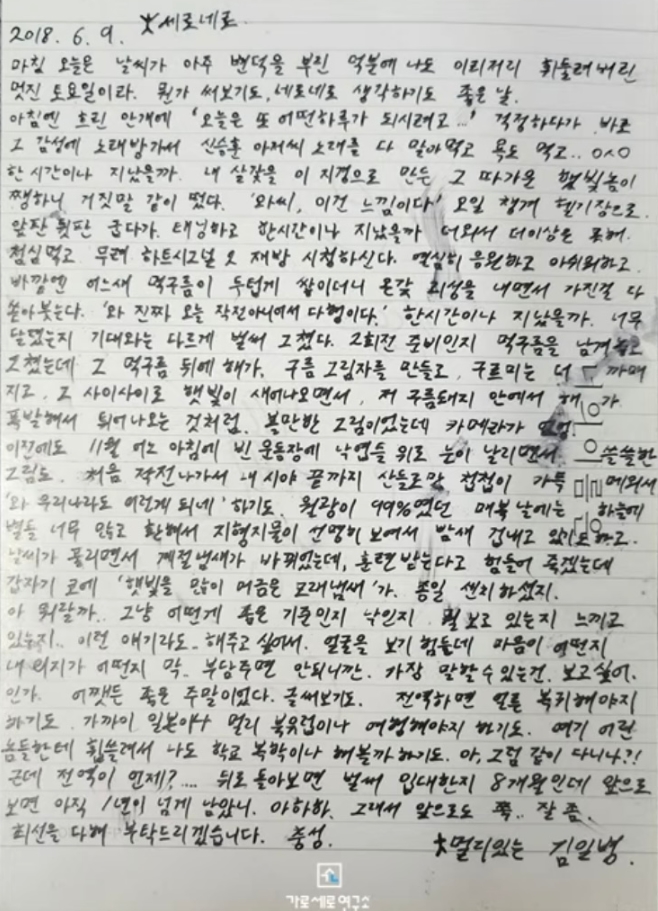 2018. 6. 9. ★세로네로
마침 오늘은 날씨가 아주 변덕을 부린 덕분에 나도 이리저리 휘둘려버린
멋진 토요일이라. 뭔가 써보기도, 네로네로 생각하기도 좋은 날.
아침엔 흐린 안개에 '오늘은 또 어떤하루가 되시려고...' 걱정하다가 바로
그 감성에 노래방가서 신승훈 아저씨 노래를 다 말아먹고 욕도 먹고.. ㅇㅅㅇ
한시간이나 지났을까. 내 살갗을 이 지경으로 만든 그 따가운 햇빛놈이
쨍하니 거짓말 같이 떴다. '와씨, 이건 느낌이다' 오일 챙겨 헬기장으로.
앞판 뒷판 굽다가. 태닝하고 한시간이나 지났을까 더워서 더이상은 못해.
점심먹고 무려 하트시그널 2 재방 시청하신다. 열심히 응원하고 아쉬워하고.
바깥엔 어느새 먹구름이 두텁게 쌓이더니 온갖 괴성을 내면서 가진걸 다
쏟아붓는다. '와 진짜 오늘 작전아니어서 다행이다.' 한시간이나 지났을까. 너무
달랬는지 기대와는 다르게 벌써 그쳤다. 2회전 준비인지 먹구름을 남겨놓고
그쳤는데 그 먹구름 뒤에 해가. 구름 그림자를 만들고, 구르미는 더 까매
지고. 그 사이사이로 햇빛이 새어나오면서, 저 구름돼지 안에서 해가
폭발해서 튀어나오는 것처럼. 볼만한 그림이었는데 카메라가 없엉
이전에도 11월 어느 아침에 빈 운동장에 낙엽들 위로 눈이 날리면서 쓸쓸한
그림도. 처음 작전나가서 내 시야 끝까지 산들로만 첩첩이 가득 메워서
'와 우리나라도 이렇게 되네' 하기도. 월광이 99%였던 매복날에는 하늘에
별들 너무 많고 환해서 지형지물이 선명히 보여서 밤새 겁내고 있기도하고.
날씨가 풀리면서 계절냄새가 바뀌었는데, 훈련받는다고 힘들어 죽겠는데
갑자기 코에 '햇빛을 많이 머금은 모래냄새'가. 종일 센치하셨지.
아 뭐랄까.. 그냥 어떻게 좋은 기준인지 낙인지 뭘 보고 있는지 느끼고
있는지.. 이런 얘기라도.. 해주고 싶어서. 얼굴을 보기 힘든데 마음이 어떤지
내 의지가 어떤지 막.. 부담주면 안되니깐. 가장 말할수 있는건. 보고싶어.
인가. 어쨌든 좋은 주말이었다. 글써보기도. 전역하면 얼른 복귀해야지
하기도. 가까이 일본이나 멀리 북유럽이나 여행해야지 하기도. 여기 어린
놈들한테 휩쓸려서 나도 학교 복학이나 해볼까하기도. 아, 그럼 같이 다니나?!
근데 전역이 언제?.... 뒤로 돌아보면 벌써 입대한지 8개월인데 앞으로
보면 아직 1년이 넘게 남았니. 아하하. 그래서 앞으로도 쭉.. 잘 좀.
최선을 다해 부탁드리겠습니다. 충성.
★멀리있는 김일병.
가로세로연구소